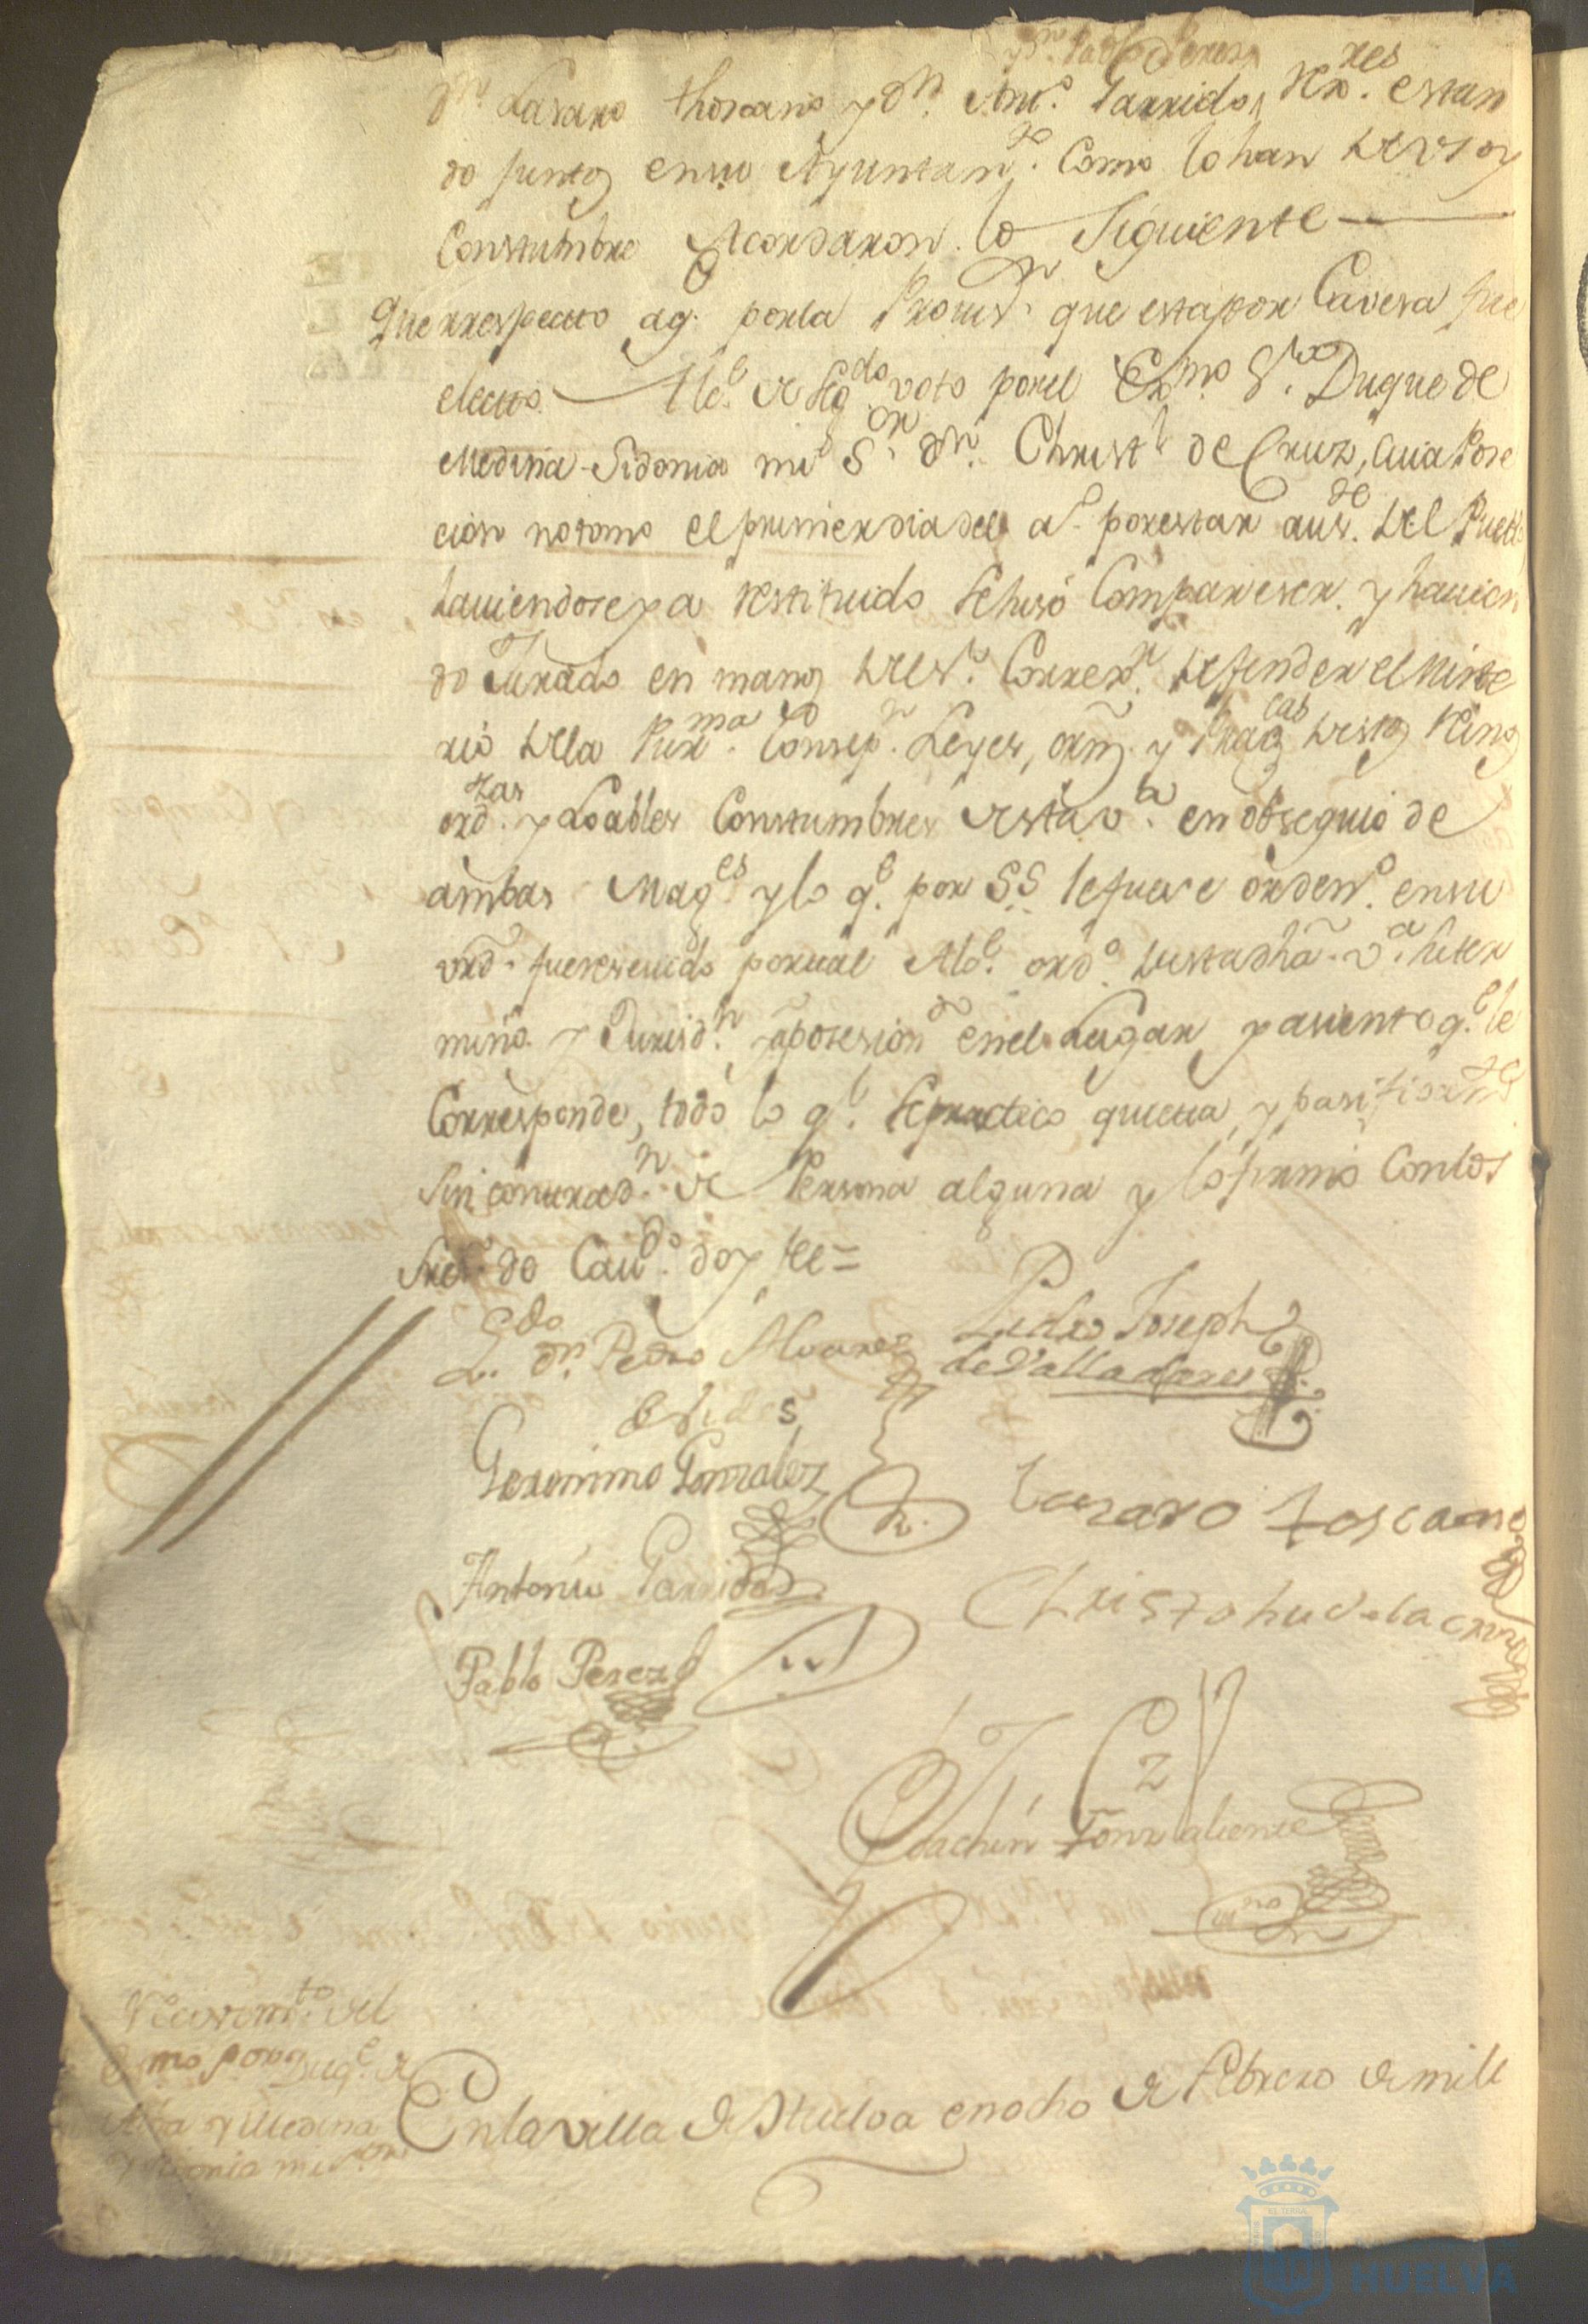 y Dn. Pablo Perez
Dn. Lasaro Thoscano y Dn. Anto. Garrido, Rexres. estan
do juntos en su Ayuntamto. Como lo han de vso y
Constumbre Acordaron lo Siguiente
Que rrespecto aq. por la Provisn. que esta por Cavesa fue
electo Alce. de Segdo voto por el Exmo Sr. Duque de
Medina Sidonia mi Sor. Dn. Christl de Cruz, cuia Pose
cion no tomo el primer dia del ao. por estar ausde. del Pueblo
haviendose ya restituido se hiso Compareser. y havien
do Jurado en manos del Sr. Correxr. defender el Miste
rio de la Purma. Consepn. Leyes, orns. y Pragcas destos Reinos
ordzas. y Loables Constumbres de esta va. en obsequio de
ambas Mages y lo qe. por SS. le fuere ordendo. en su
vrd. fue resevido por tal Alce. ordo. desta dha. va. su ter
mino y Jurisdn. y aposesiondo en el Lugar y asiento qe. le
Corresponde, todo lo qe. se practico quieta, y pasificamte
sin contradn. de Persona alguna y lo firmo Con los
Sres. de Cavdo. doy fee=
Ldo. Dn. Pedro Alvarez
Pedro Joseph
de Valladares
Geronimo Gonzales
Lazaro Toscano
Antonio Garrido
Christobal de la Cruz
Pablo Perez
Joachin Gonz aliense
ssno
Recivimto. del
Exmo Sor Duqe. de
Alba y Medina
Sidonia mi Sor.
En la villa de Huelva en ocho de Febrero de mill
HUELVA